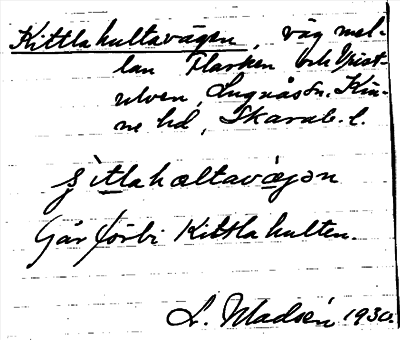 Kittlahultavägen, väg mel-
lan Flarken och Opist-
ulven, Lugnås sn. Kin-
ne hd, Skarab. l.
ʃitlahæltavægən
Går förbi Kittlahulten.
L. Madsén 1930.